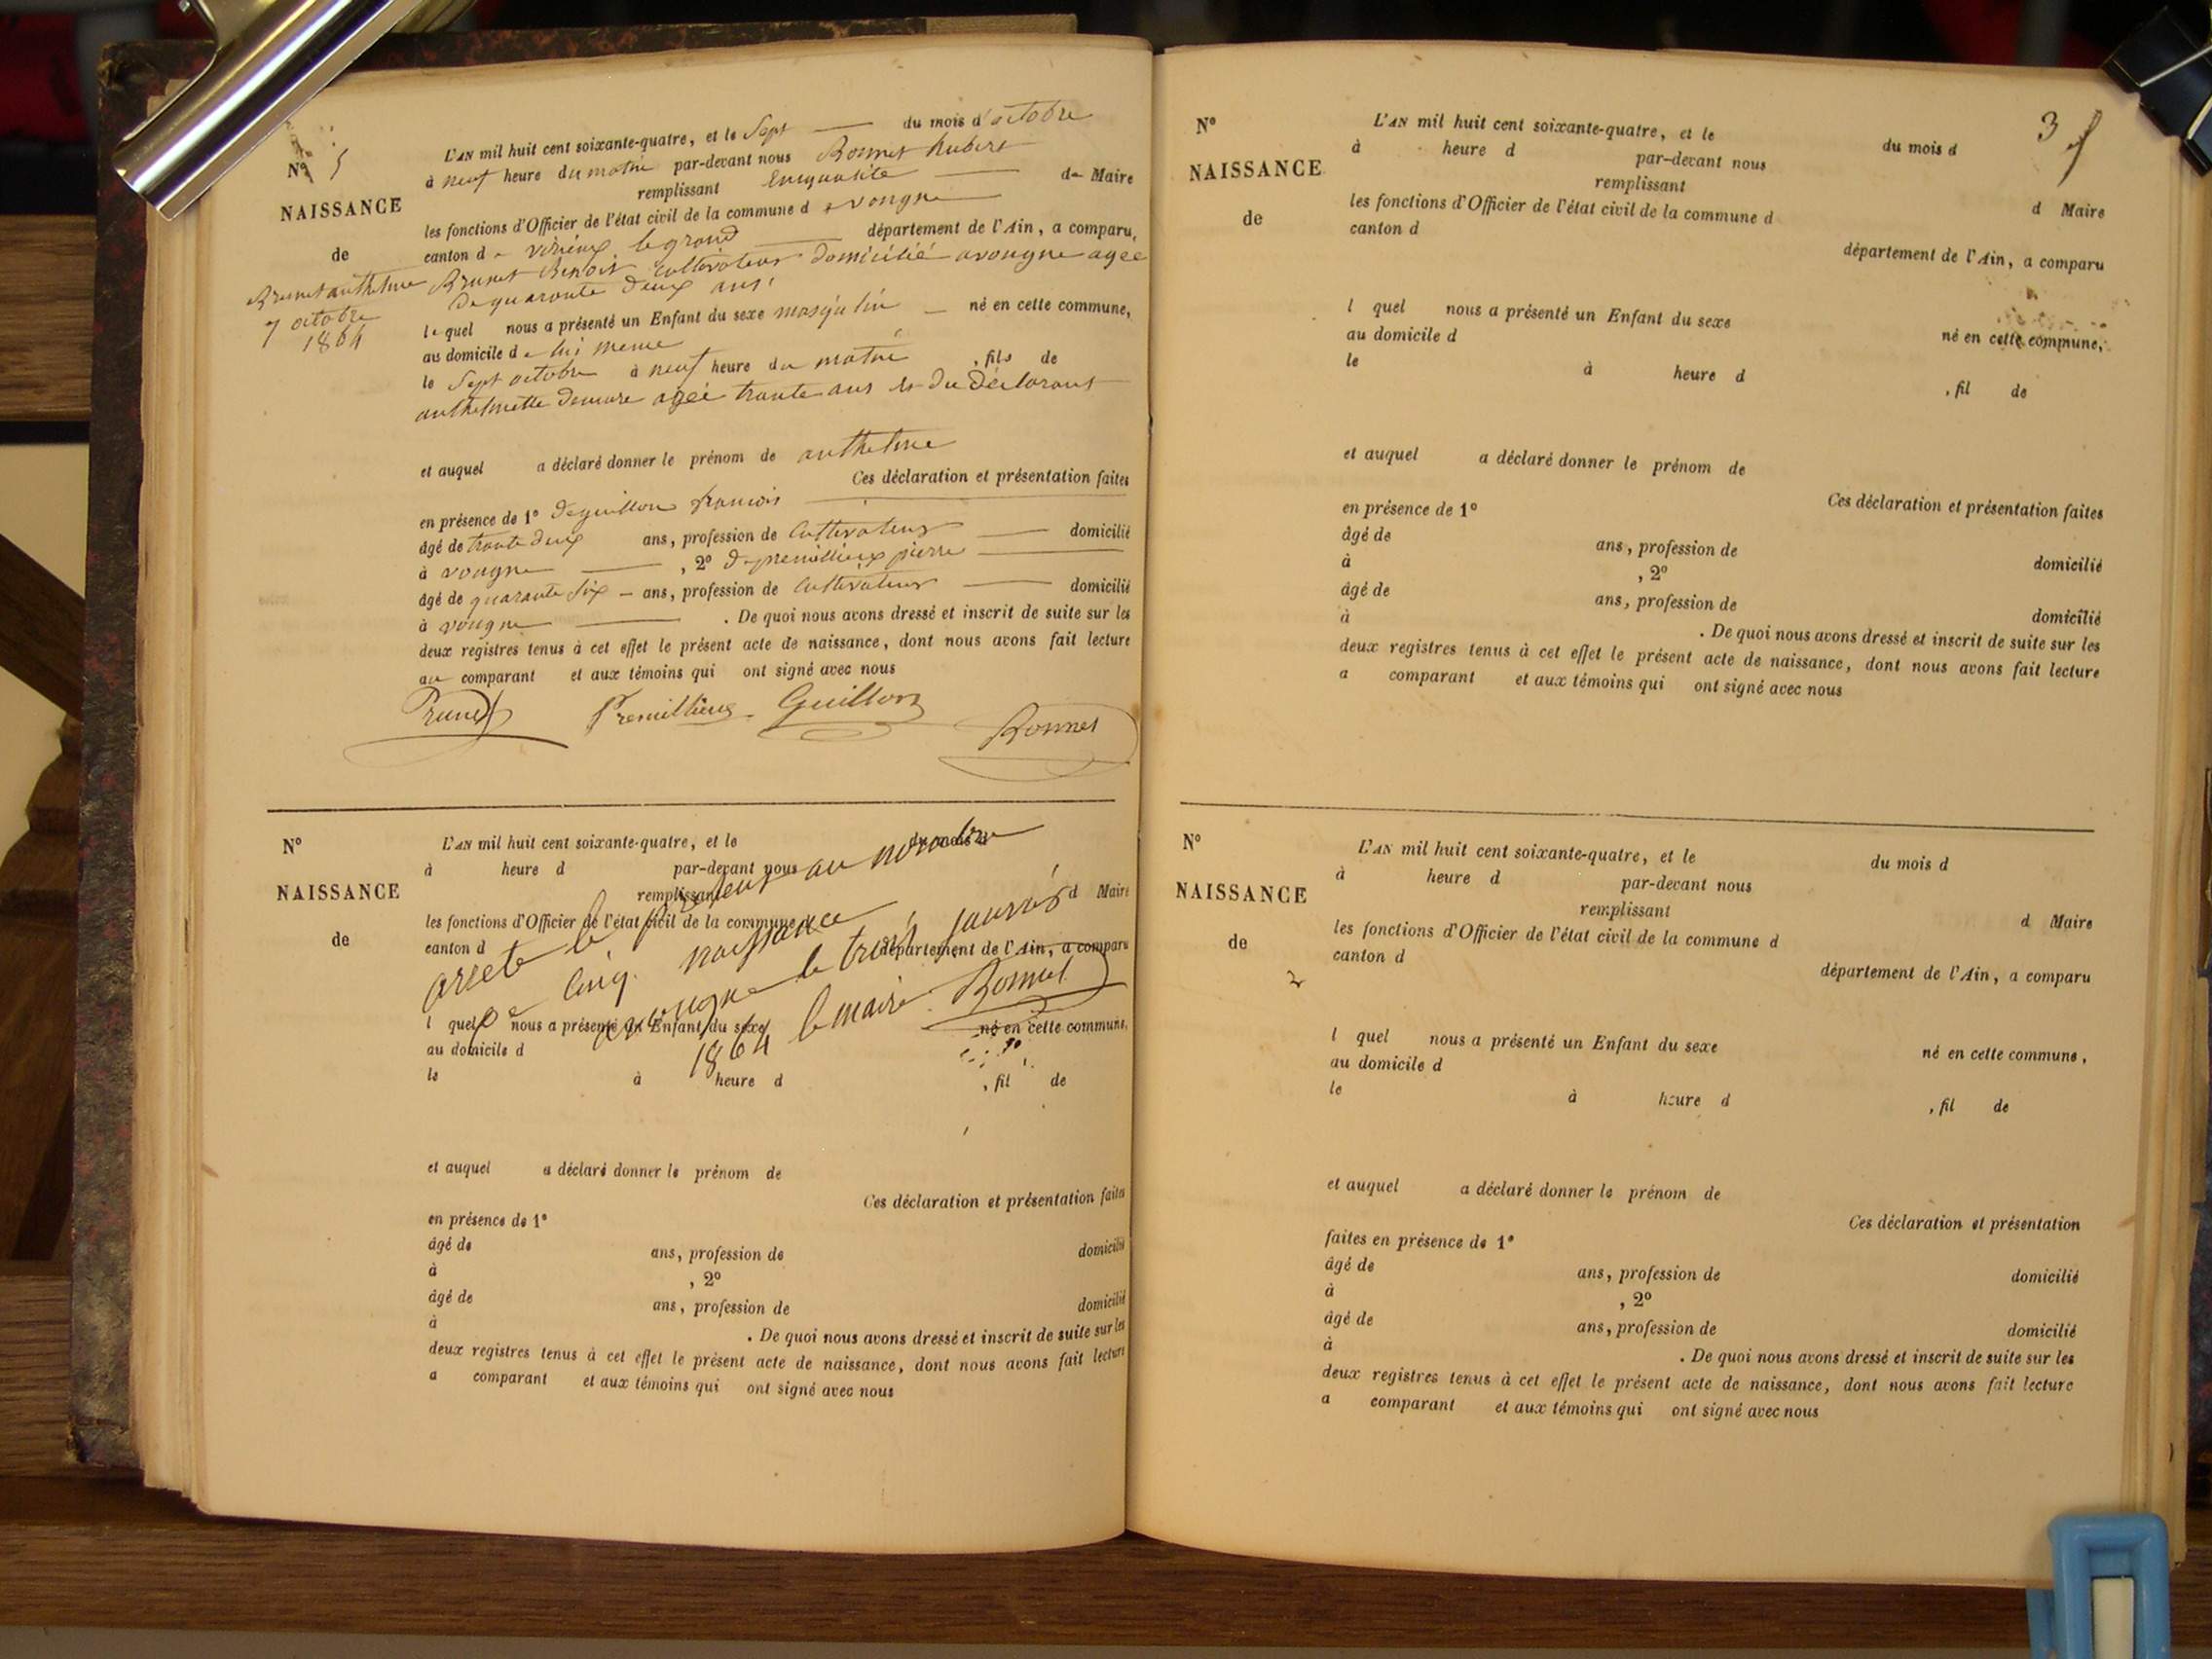 Nº 5
NAISSANCE
de
Brunet anthelme
7 octobre
1864
L'AN mil huit cent soixante-quatre, et le Sept du mois d'octobre
à neuf heure du matin par-devant nous Bonnet hubert
remplissant de Maire
les fonctions d'Officier de l'état civil de la commune de vongne
canton de virieux le grand département de l'Ain, a comparu,
Brunet Benoit cultivateur domicilié a vongne agee
de quarante deux ans
lequel nous a présenté un Enfant du sexe masqulin né en cette commune,
au domicile de lui meme
le Sept octobre à neuf heure du matin , fils de
anthelmette demare agée trante ans et du déclarant
et auquel a déclaré donner le prénom de anthelme
Ces déclaration et présentation faites
en présence de 1º deguillon francois
âgé de trante deux ans, profession de Cultivateur domicilié
à vongne , 2º de premillieux pierre
âgé de quarante Six ans, profession de Cultivateur domicilié
à vongne . De quoi nous avons dressé et inscrit de suite sur les
deux registres tenus à cet effet le présent acte de naissance, dont nous avons fait lecture
au comparant et aux témoins qui ont signé avec nous
Brunet Premillieux Guillon
Bonnet
Nº
NAISSANCE
de
L'AN mil huit cent soixante-quatre, et le du mois d
à heure d par-devant nous
remplissant d Maire
les fonctions d'Officier de l'état civil de la commune d
canton d département de l'Ain, a comparu
arrete le present au nombre
de Cinq naissance
a vongne le trois janvier
1864 le maire Bonnet
l quel nous a présenté un Enfant du sexe né en cette commune,
au domicile d
le à heure d , fil de
et auquel a déclaré donner le prénom de
Ces déclaration et présentation faites
en présence de 1º
âgé de ans, profession de domicilié
à , 2º
âgé de ans, profession de domicilié
à . De quoi nous avons dressé et inscrit de suite sur les
deux registres tenus à cet effet le présent acte de naissance, dont nous avons fait lecture
a comparant et aux témoins qui ont signé avec nous
3
Nº
NAISSANCE
de
L'AN mil huit cent soixante-quatre, et le du mois d
à heure d par-devant nous
remplissant d Maire
les fonctions d'Officier de l'état civil de la commune d
canton d département de l'Ain, a comparu
l quel nous a présenté un Enfant du sexe né en cette commune,
au domicile d
le à heure d , fil de
et auquel a déclaré donner le prénom de
Ces déclaration et présentation faites
en présence de 1º
âgé de ans, profession de domicilié
à , 2º
âgé de ans, profession de domicilié
à . De quoi nous avons dressé et inscrit de suite sur les
deux registres tenus à cet effet le présent acte de naissance, dont nous avons fait lecture
a comparant et aux témoins qui ont signé avec nous
Nº
NAISSANCE
de
L'AN mil huit cent soixante-quatre, et le du mois d
à heure d par-devant nous
remplissant d Maire
les fonctions d'Officier de l'état civil de la commune d
canton d département de l'Ain, a comparu
l quel nous a présenté un Enfant du sexe né en cette commune,
au domicile d
le à heure d , fil de
et auquel a déclaré donner le prénom de
Ces déclaration et présentation
faites en présence de 1º
âgé de ans, profession de domicilié
à , 2º
âgé de ans, profession de domicilié
à . De quoi nous avons dressé et inscrit de suite sur les
deux registres tenus à cet effet le présent acte de naissance, dont nous avons fait lecture
a comparant et aux témoins qui ont signé avec nous